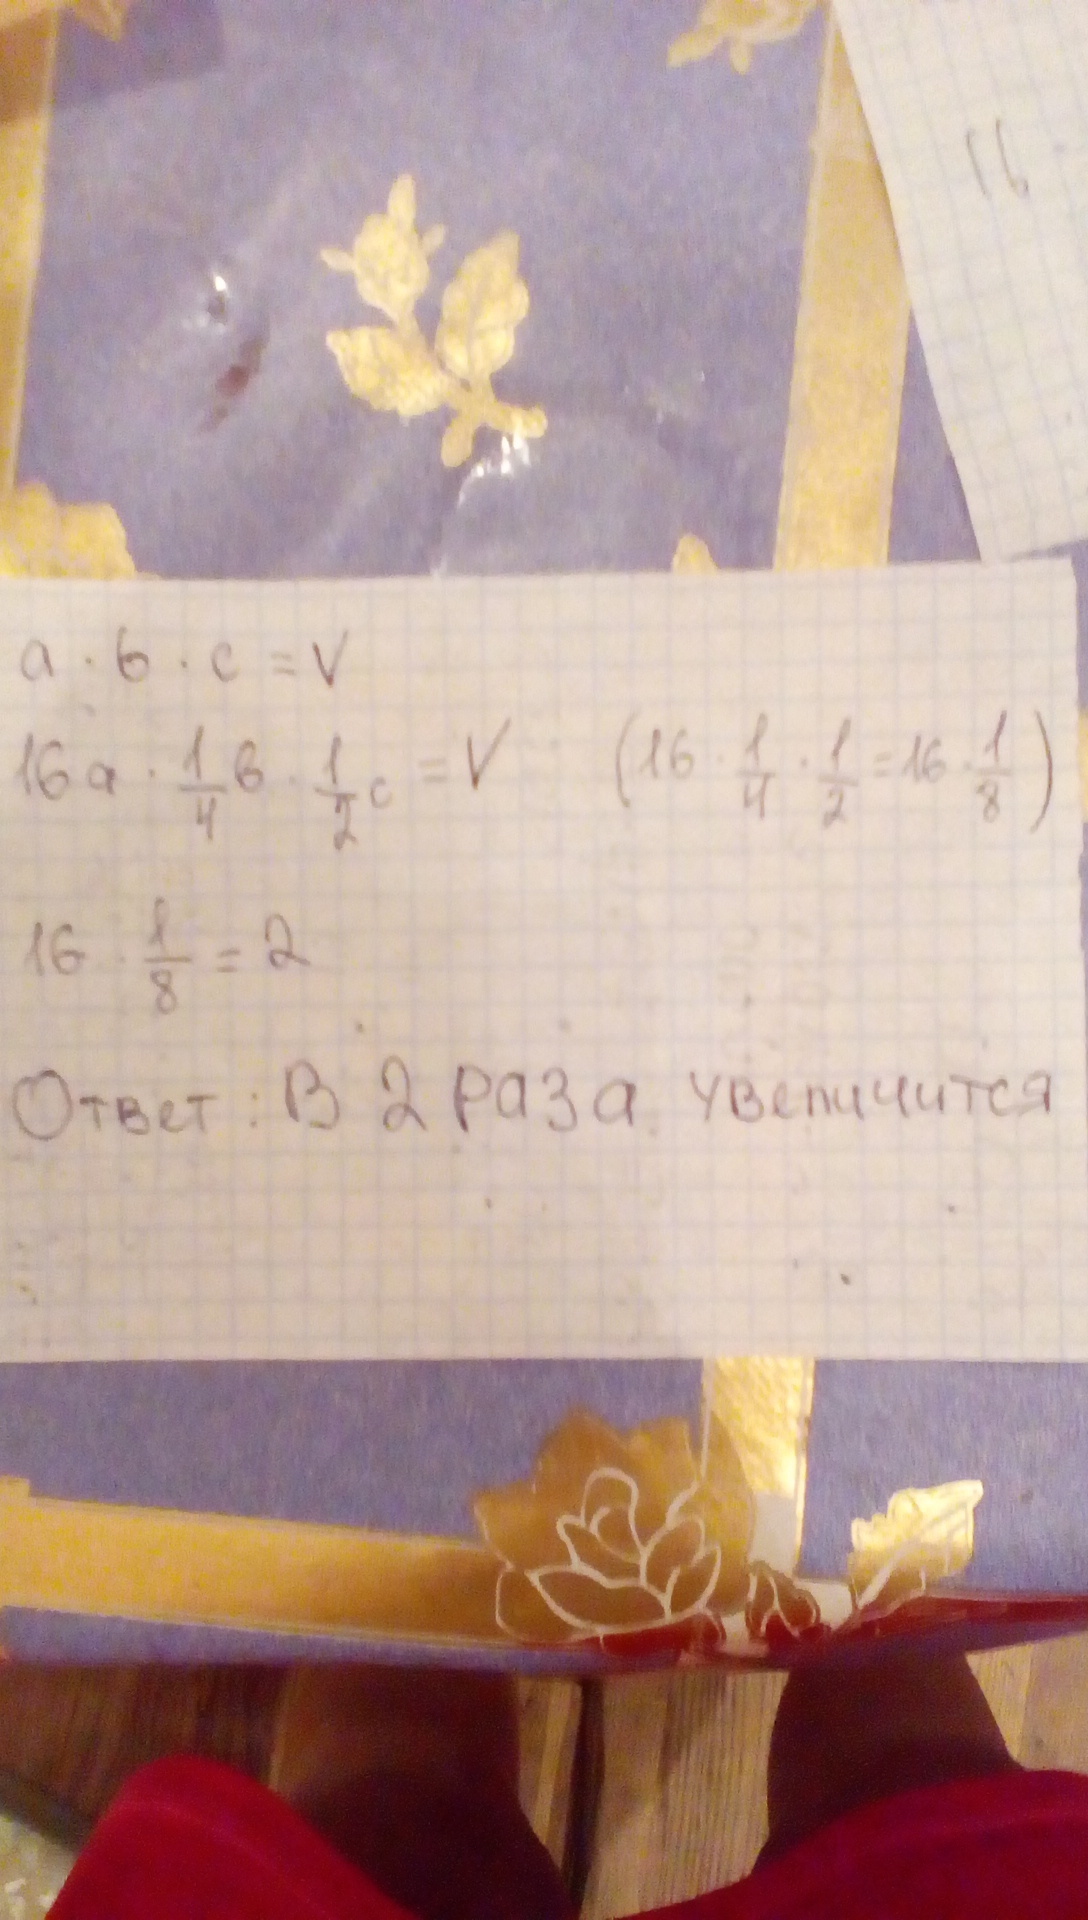 16
a · b · c = V
16a · 1/4 b · 1/2 c = V (16 · 1/4 · 1/2 = 16 · 1/8)
16 · 1/8 = 2
Ответ: В 2 раза увеличится